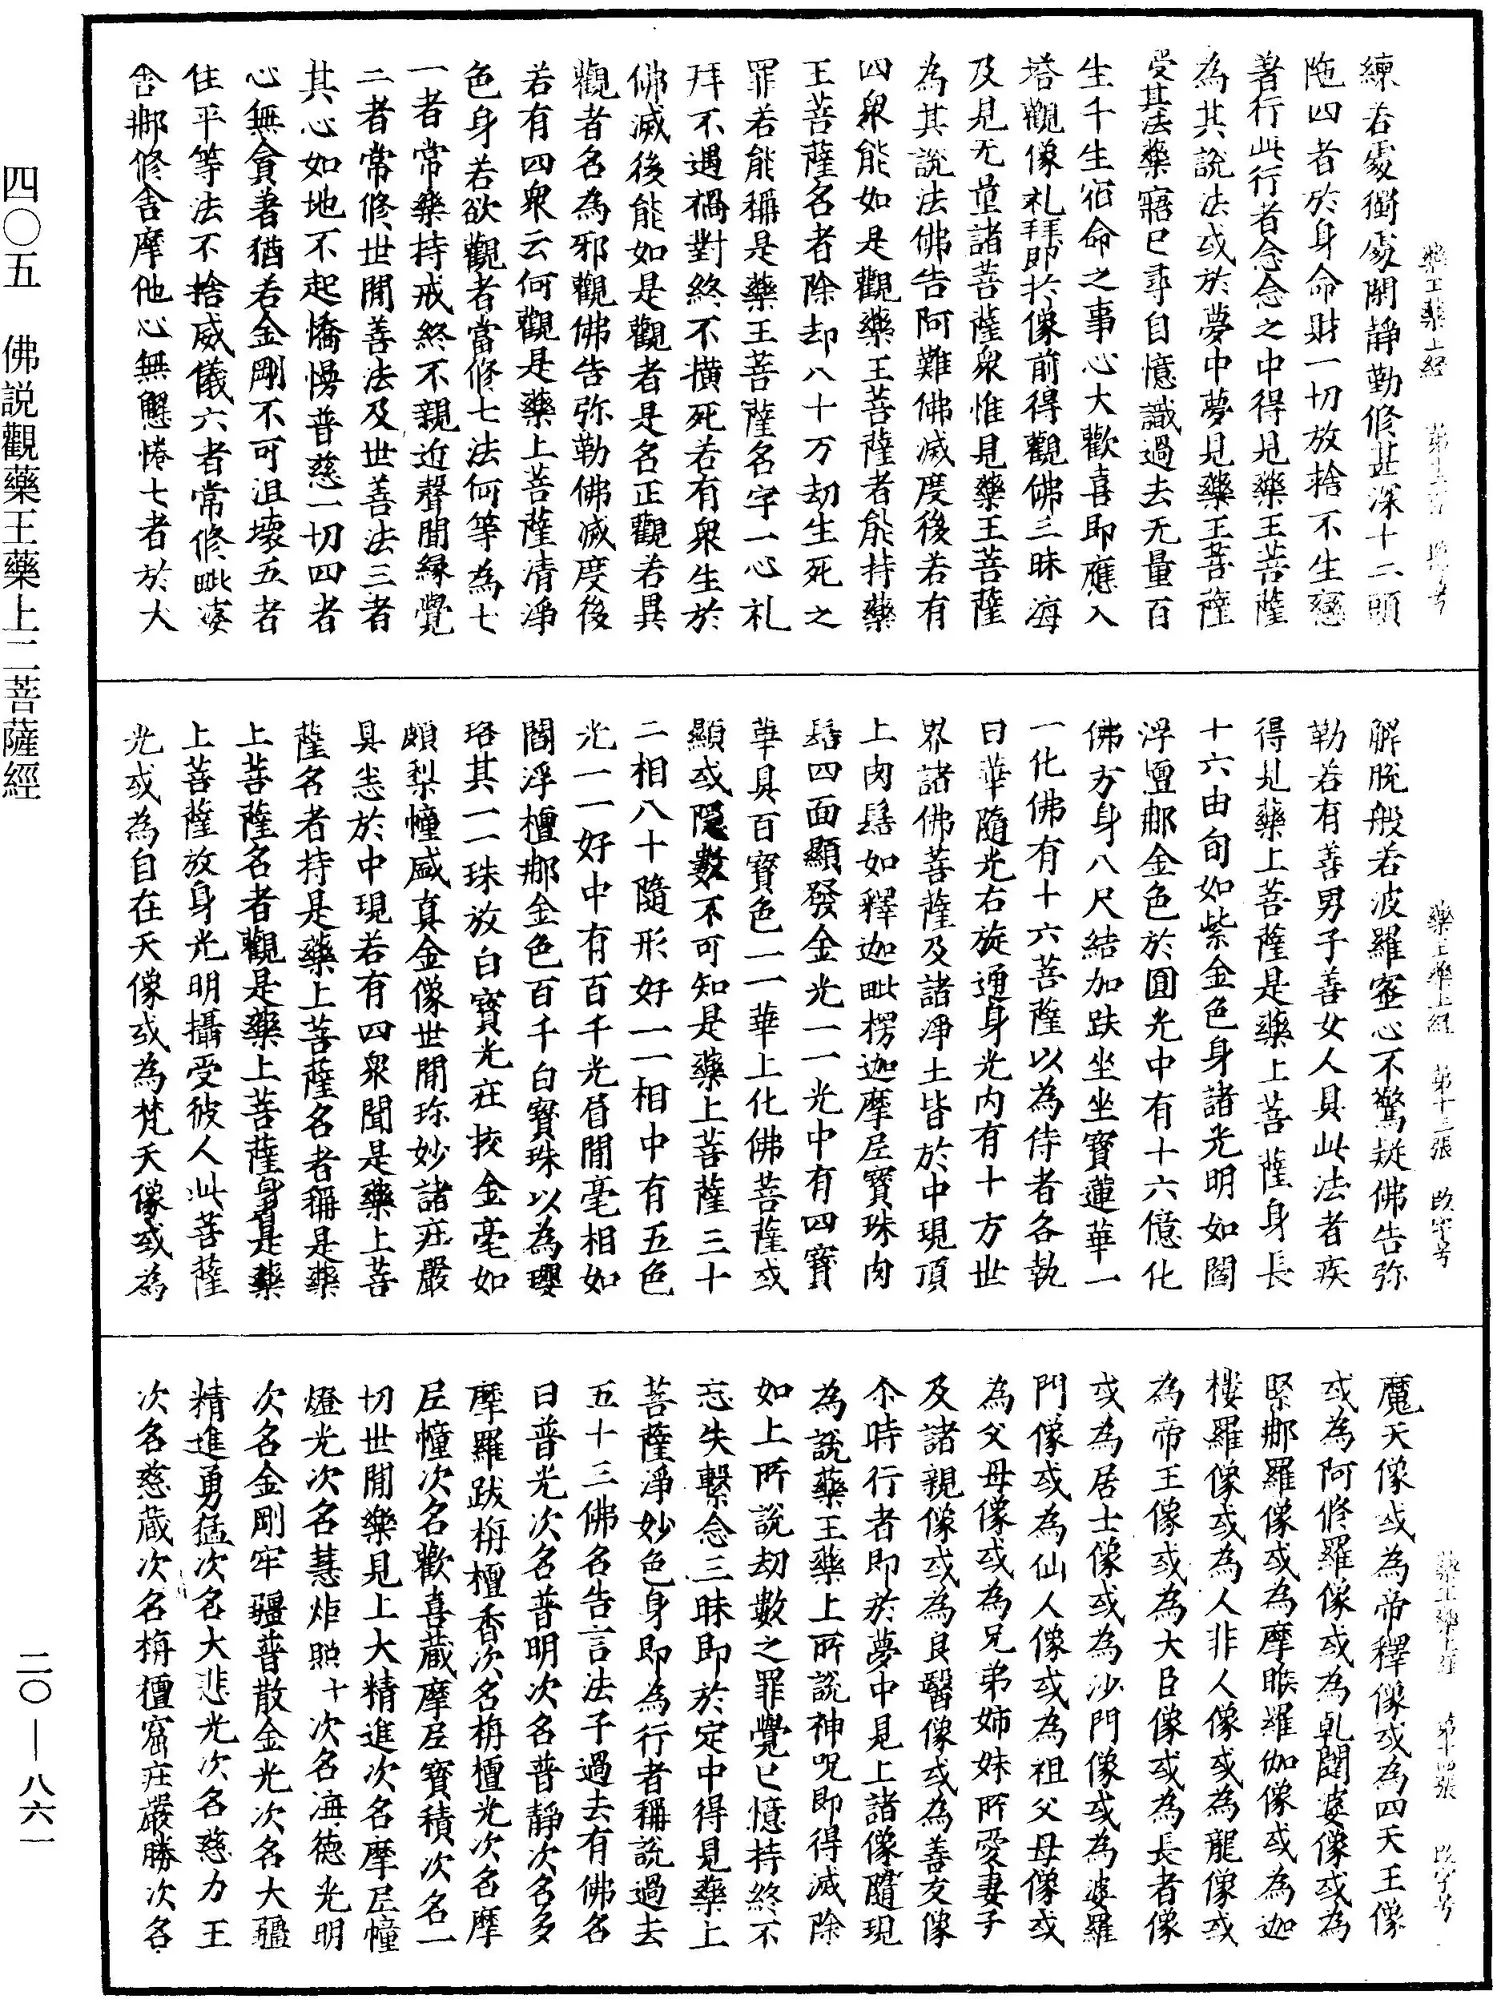 四〇五　佛説觀藥王藥上二菩薩經
二〇—八六一
藥王藥上經
練若處獨處閑靜勤修甚深十二頭
陁四者於身命財一切放捨不生戀
著行此行者念念之中得見藥王菩薩
為其說法或於夢中夢見藥王菩薩
受其法藥寤已尋自憶識過去无量百
生千生宿命之事心大歡喜即應入
塔觀像礼拜即於像前得觀佛三昧海
及見无量諸菩薩衆惟見藥王菩薩
為其說法佛告阿難佛滅度後若有
四衆能如是觀藥王菩薩者能持藥
王菩薩名者除却八十万劫生死之
罪若能稱是藥王菩薩名字一心礼
拜不遇禍對終不橫死若有衆生於
佛滅後能如是觀者是名正觀若異
觀者名為邪觀佛告弥勒佛滅度後
若有四衆云何觀是藥上菩薩清淨
色身若欲觀者當修七法何等為七
一者常樂持戒終不親近聲聞緣覺
二者常修世閒善法及世善法三者
其心如地不起憍慢普慈一切四者
心無貪著猶若金剛不可沮壞五者
住平等法不捨威儀六者常修毗婆
舍那修舍摩他心無懈惓七者於大
藥王藥上經　第十三張　改字号
解脫般若波羅蜜心不驚疑佛告弥
勒若有善男子善女人具此法者疾
得見藥上菩薩是藥上菩薩身長
十六由旬如紫金色身諸光明如閻
浮壇那金色於圓光中有十六億化
佛方身八尺結加趺坐坐寶蓮華一
一化佛有十六菩薩以為侍者各執
白華隨光右旋通身光内有十方世
界諸佛菩薩及諸淨土皆於中現頂
上肉髻如釋迦毗楞迦摩尼寶珠肉
髻四面顯發金光一一光中有四寶
華具百寶色一一華上化佛菩薩或
顯或隱數不可知是藥上菩薩三十
二相八十隨形好一一相中有五色
光一一好中有百千光眉閒毫相如
閻浮檀那金色百千白寶珠以為瓔
珞其一一珠放白寶光莊挍金毫如
頗梨幢盛真金像世閒珎妙諸莊嚴
具悉於中現若有四衆聞是藥上菩
薩名者持是藥上菩薩名者稱是藥
上菩薩名者觀是藥上菩薩身者是藥
上菩薩放身光明攝受彼人此菩薩
光或為自在天像或為梵天像或為
藥王藥上經　第十四張　改字号
魔天像或為帝釋像或為四天王像
或為阿脩羅像或為乹闥婆像或為
緊那羅像或為摩睺羅伽像或為迦
樓羅像或為人非人像或為龍像或
為帝王像或為大臣像或為長者像
或為居士像或為沙門像或為婆羅
門像或為仙人像或為祖父母像或
為父母像或為兄弟姉妹所愛妻子
及諸親像或為良醫像或為善友像
尒時行者即於夢中見上諸像隨現
為說藥王藥上所說神呪即得滅除
如上所說劫數之罪覺已憶持終不
忘失繫念三昧即於定中得見藥上
菩薩淨妙色身即為行者稱說過去
五十三佛名告言法子過去有佛名
曰普光次名普明次名普靜次名多
摩羅跋栴檀香次名栴檀光次名摩
尼幢次名歡喜藏摩尼寶積次名一
切世閒樂見上大精進次名摩尼幢
燈光次名慧炬照十次名海德光明
次名金剛牢彊普散金光次名大彊
精進勇猛次名大悲光次名慈力王
次名慈藏次名栴檀窟莊嚴勝次名